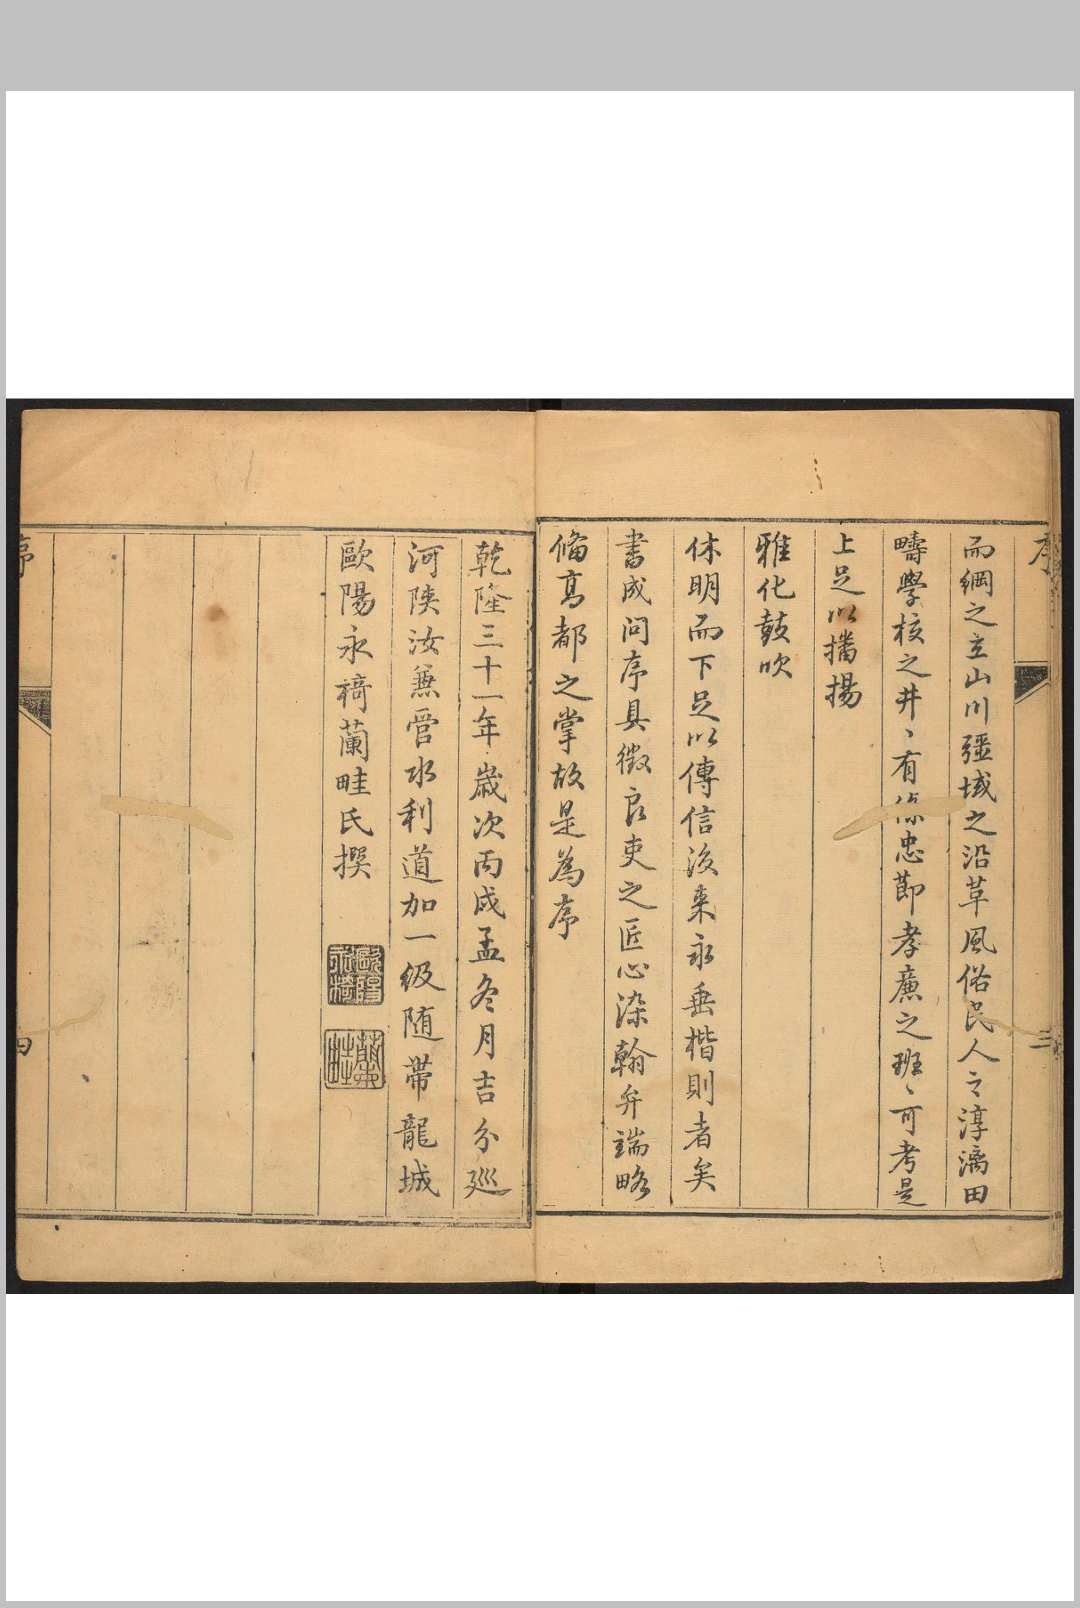 序
三
而綱之立山川彊域之沿革風俗民人之淳漓田
疇學校之井、有條忠節孝廉之班、可考是
上足以播揚
雅化鼓吹
休明而下足以傳信後來永垂楷則者矣
書成问序具徵良吏之匠心染翰弁端略
備高都之掌故是為序
乾隆三十一年歲次丙戌孟冬月吉分巡
河陝汝兼管水利道加一級随帶龍城
歐陽永裿蘭畦氏撰
歐陽永裿
蘭畦
序
四